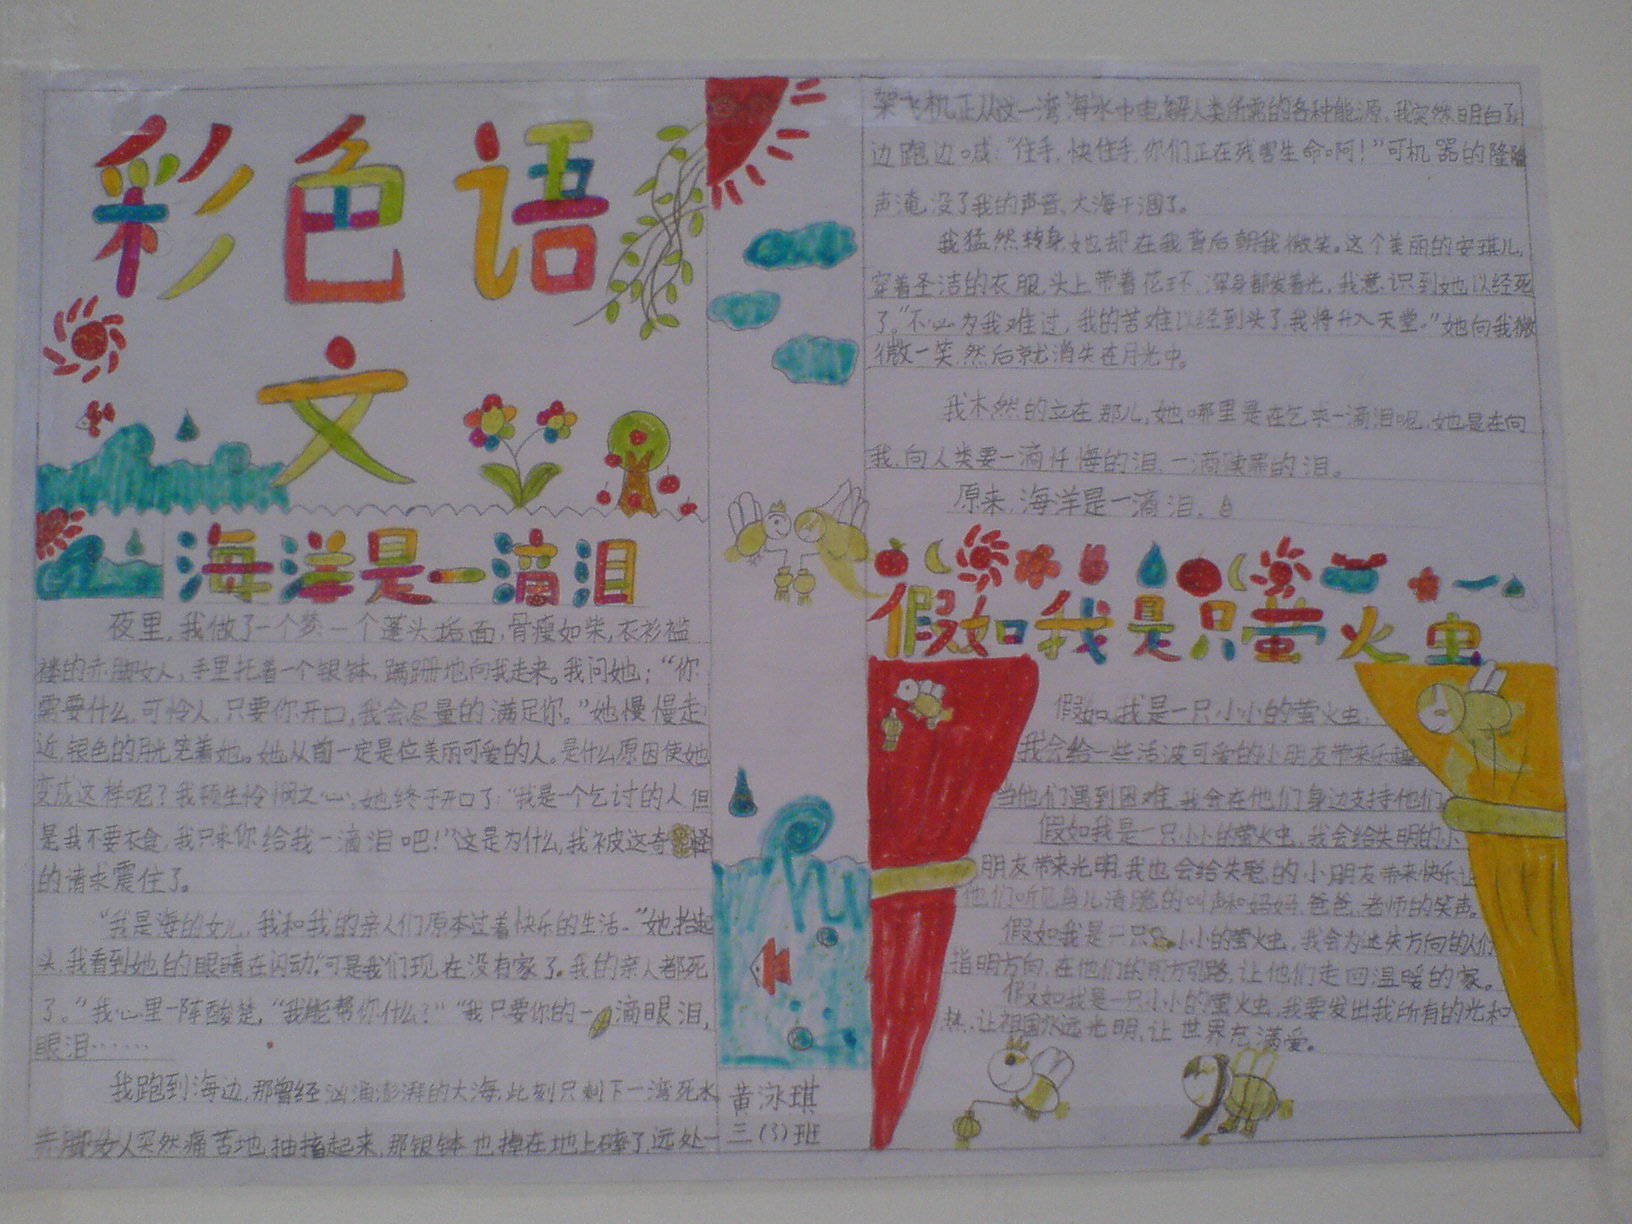 彩色语
文
海洋是一滴泪
夜里,我做了一个梦一个蓬头垢面,骨瘦如柴,衣衫褴
褛的赤脚女人,手里托着一个银钵,蹒跚地向我走来。我问她:“你
需要什么,可怜人,只要你开口,我会尽量的满足你。”她慢慢走
近,银色的月光笼着她。她从前一定是位美丽可爱的人。是什么原因使她
变成这样呢?我顿生怜悯之心,她终于开口了:“我是一个乞讨的人但
是我不要衣食,我只求你给我一滴泪吧!”这是为什么,我被这奇怪
的请求震住了。
“我是海的女儿,我和我的亲人们原本过着快乐的生活。”她抬起
头,我看到她的眼睛在闪动“可是我们现在没有家了。我的亲人都死
了。”我心里一阵酸楚,“我能帮你什么?”“我只要你的一滴眼泪,
眼泪……
我跑到海边,那曾经汹涌澎湃的大海,此刻只剩下一湾死水
赤脚女人突然痛苦地抽搐起来,那银钵也掉在地上碎了,远处一
架飞机正从这一湾海水中电解人类所需的各种能源,我突然明白了
边跑边喊:“住手,快住手,你们正在残害生命啊!”可机器的隆隆
声淹没了我的声音,大海干涸了。
我猛然转身她却在我背后朝我微笑。这个美丽的安琪儿,
穿着圣洁的衣服,头上带着花环,浑身都发着光,我意识到她以经死
了。“不必为我难过,我的苦难以经到头了,我将升入天堂。”她向我微
微一笑,然后就消失在月光中。
我木然的立在那儿,她哪里是在乞求一滴泪呢,她是在向
我,向人类要一滴忏悔的泪,一滴赎罪的泪。
原来,海洋是一滴泪。
假如我是只萤火虫
假如我是一只小小的萤火虫,
我会给一些活波可爱的小朋友带来乐趣
当他们遇到困难,我会在他们身边支持他们
假如我是一只小小的萤火虫,我会给失明的小
朋友带来光明,我也会给失聪的小朋友带来快乐,让
他们听见鸟儿清脆的叫声和妈妈,爸爸,老师的笑声。
假如我是一只小小的萤火虫,我会为迷失方向的人们
指明方向,在他们的前方引路,让他们走回温暖的家。
假如我是一只小小的萤火虫,我要发出我所有的光和
热,让祖国永远光明,让世界充满爱。
黄泳琪
三(3)班